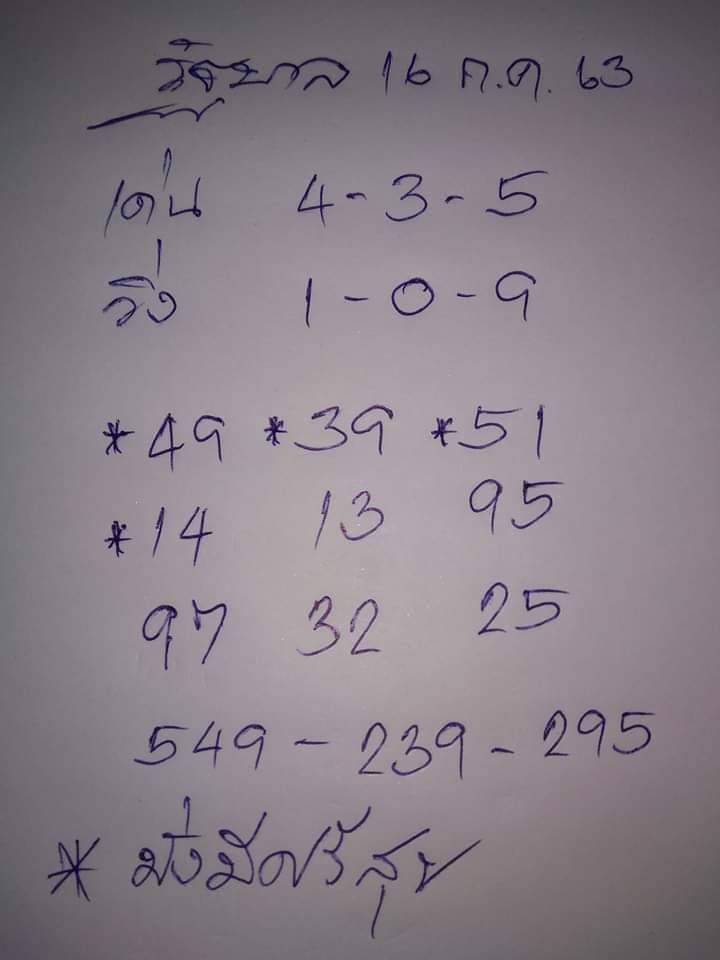 รัฐบาล 16 ก.ค. 63
เด่น 4-3-5
วิ่ง 1-0-9
*49 *39 *51
*14 13 95
97 32 25
549 - 239 - 295
* มั่งมีศรีสุข